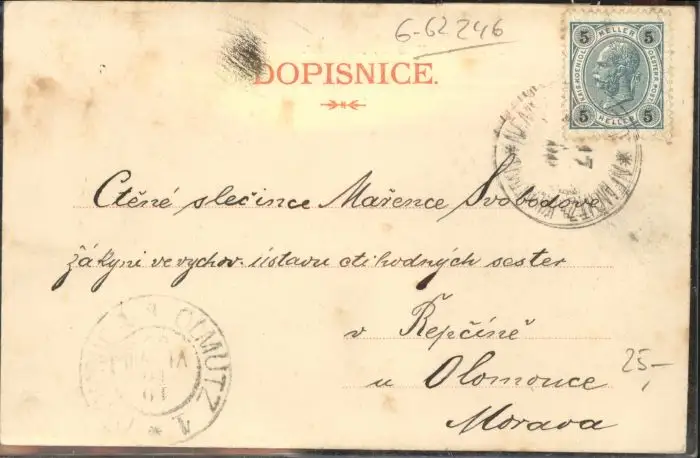 6-62246
DOPISNICE.
5 HELLER 5
5 HELLER 5
17
Ctěné slečince Mařence Svobodove
žákyni ve vychov. ústavu ctihodných sester
v Řepčíně
u Olomouce
Morava
25,-
OLMUTZ 1